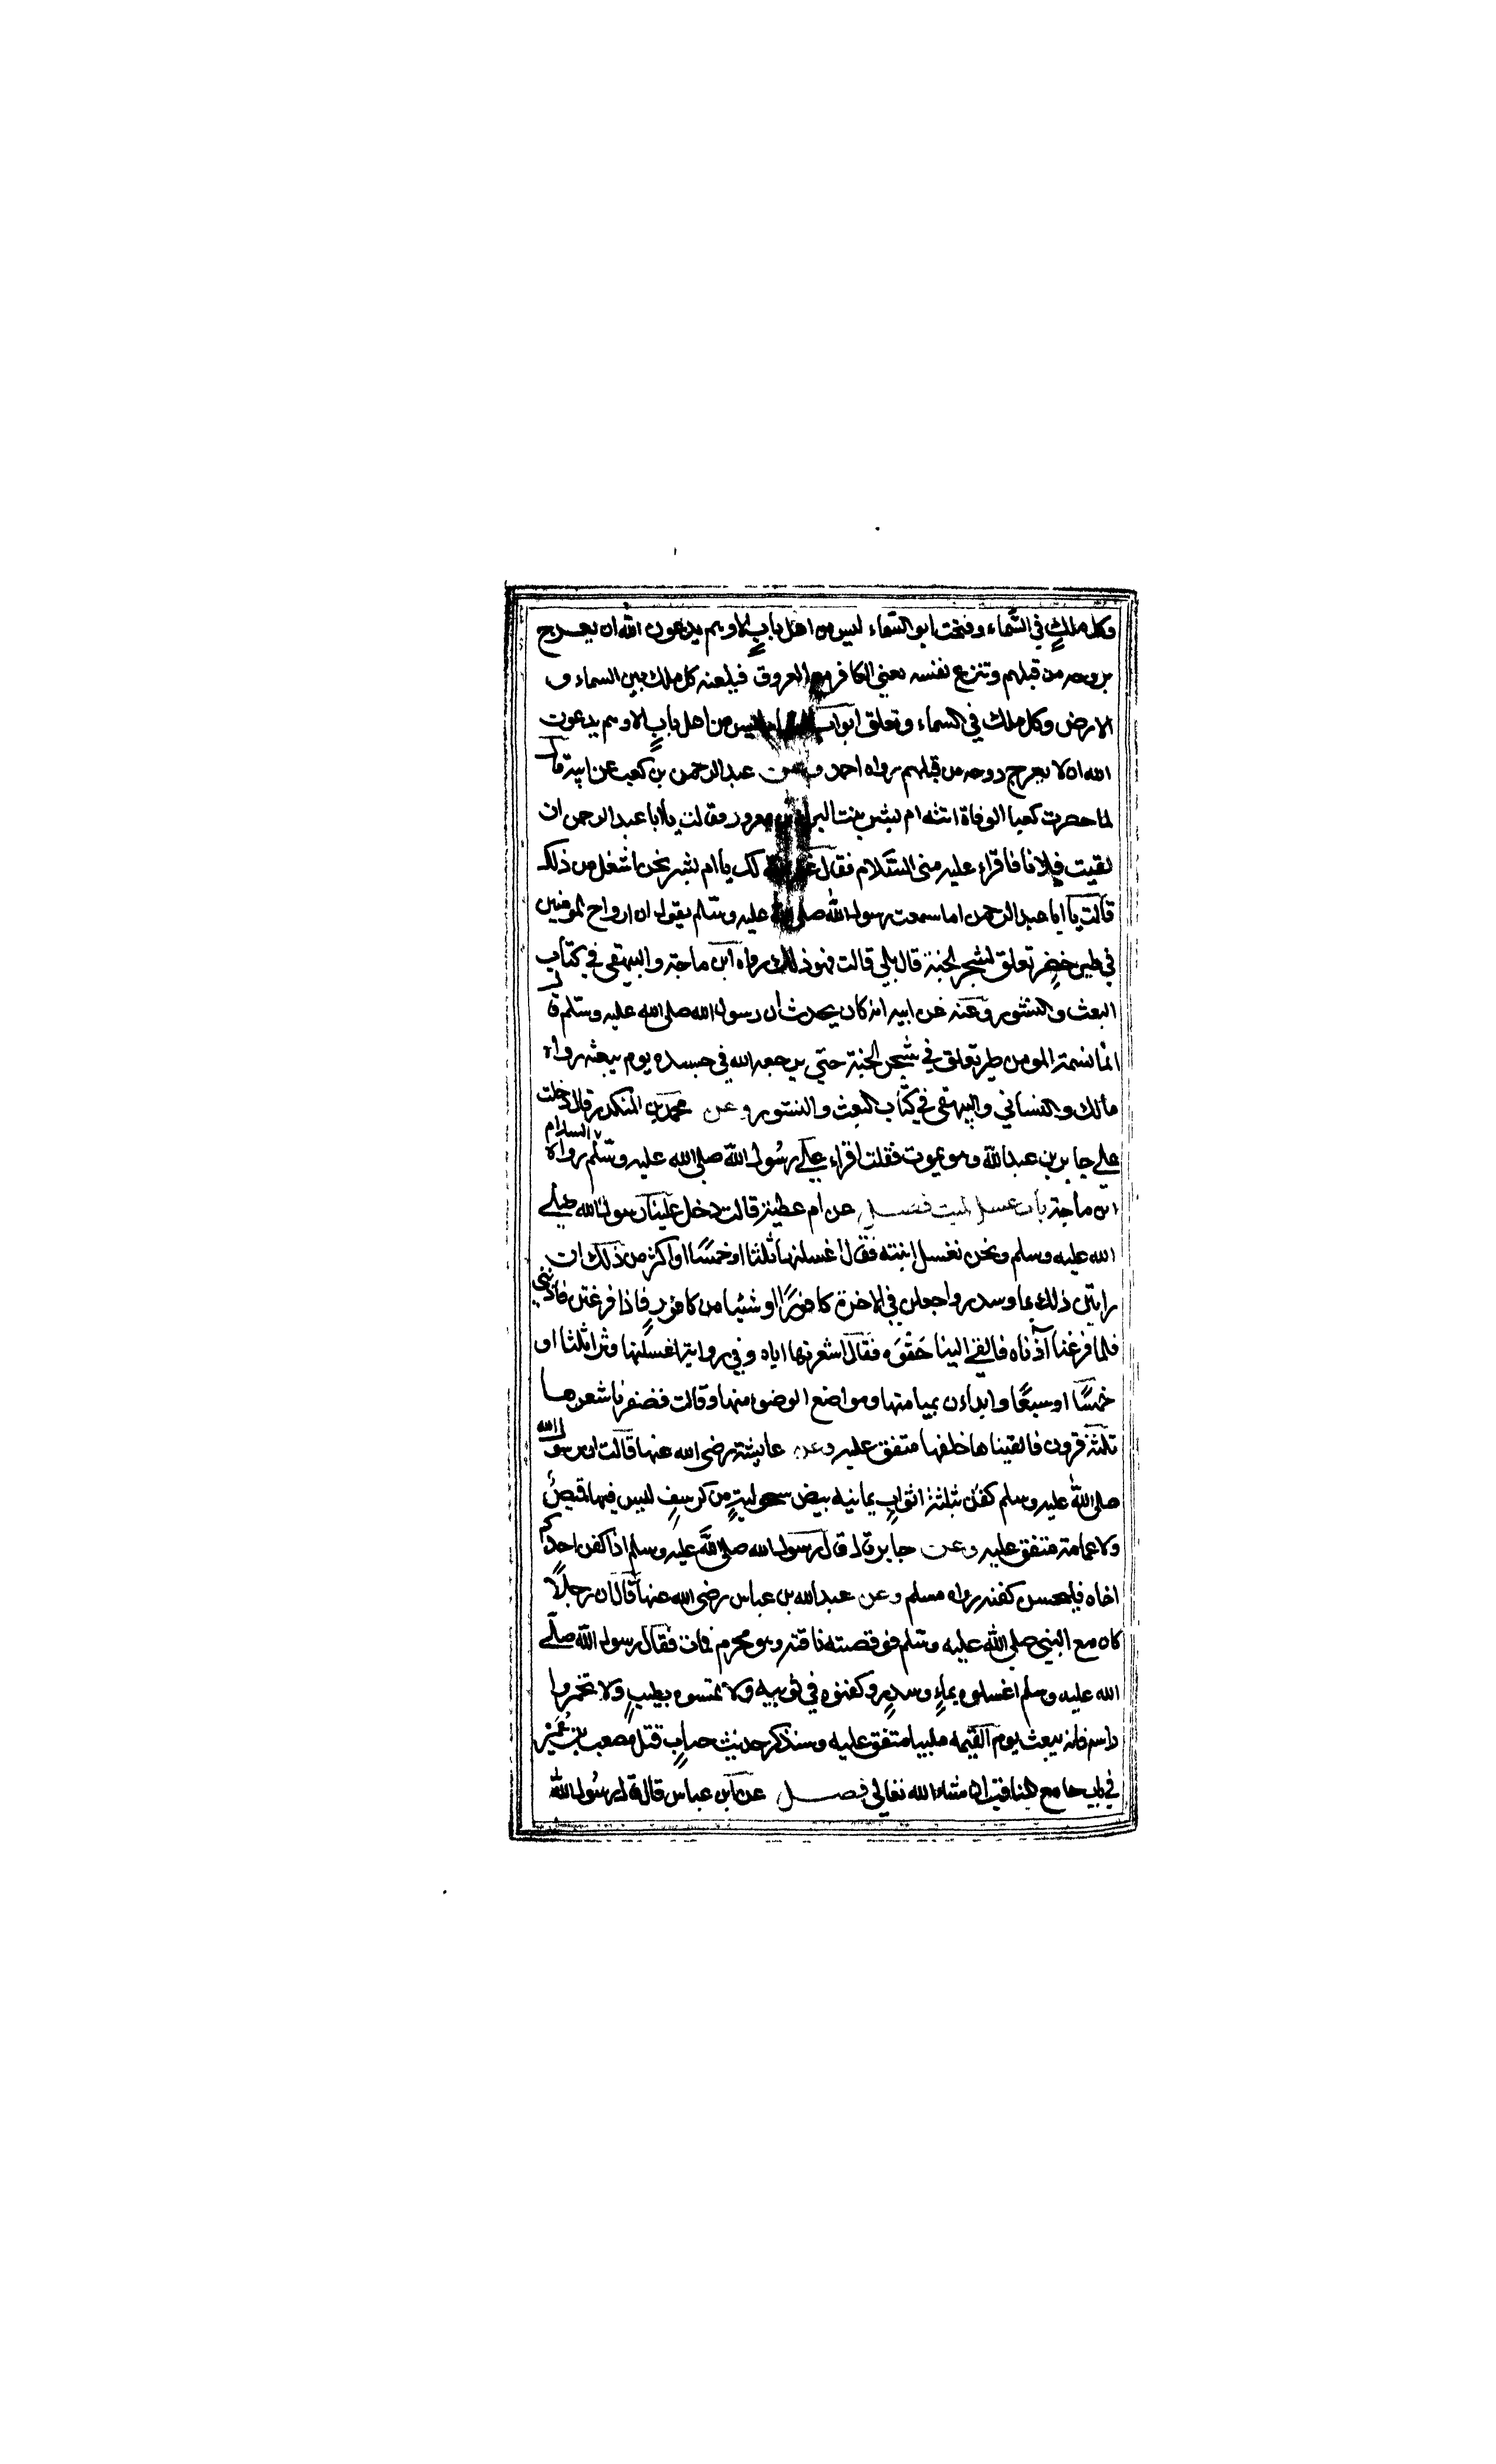 وكل ملك في السماء وفتحت ابو السماء ليس من اهل باب الا وهم يدعون الله ان يعرج
بروحه من قبلهم وتنزع نفسه يعني الكافر مع العروق فيلعنه كل ملك بين السماء و
الارض وكل ملك في السماء وتغلق ابواب ليس من اهل باب الا وهم يدعون
الله ان لا يعرج روحه من قبلهم رواه احمد وعن عبد الرحمن بن كعب عن ابيه قال
لما حضرت كعبا الوفاة اتته ام بشر بنت البراء بن معرور فقالت يا ابا عبد الرحمن ان
لقيت فلانا فاقراء عليه مني السلام فقال غفر الله لك يا ام بشر نحن اشغل من ذلك
قالت يا ابا عبد الرحمن اما سمعت رسول الله صلى الله عليه وسلم يقول ان ارواح المومنين
في طير خضر تعلق بشجر الجنة قال بلى قالت فهو ذلك رواه ابن ماجة والبيهقي في كتاب
البعث والنشور وعنه عن ابيه انه كان يحدث ان رسول الله صلى الله عليه وسلم قال
انما نسمة المومن طير تعلق في شجر الجنة حتي يرجعه الله في جسده يوم يبعثه رواه
مالك والنسائي والبيهقي في كتاب البعث والنشور وعن محمد بن المنكدر قال دخلت
علي جابر بن عبد الله وهو يموت فقلت اقراء علي رسول الله صلى الله عليه وسلم السلام رواه
ابن ماجة باب غسل الميت فصل عن ام عطية قالت دخل علينا رسول الله صلي
الله عليه وسلم ونحن نغسل ابنته فقال اغسلنها ثلثا او خمسا او اكثر من ذلك ان
رايتن ذلك بماء وسدر واجعلن في الاخرة كافورا او شيئا من كافور فاذا فرغتن فاذنني
فلما فرغنا آذناه فالقي الينا حقوه فقال اشعرنها اياه وفي رواية اغسلنها وترا ثلثا او
خمسا او سبعا وابداءن بميامنها ومواضع الوضوء منها وقالت فضفرنا شعرها
ثلثة قرون فالقيناها خلفها متفق عليه وعن عايشة رضي الله عنها قالت ان رسول الله
صلى الله عليه وسلم كفن بثلثة اثواب يمانية بيض سحولية من كرسف ليس فيها قميص
ولا عمامة متفق عليه وعن جابر قال قال رسول الله صلى الله عليه وسلم اذا كفن احدكم
اخاه فليحسن كفنه رواه مسلم وعن عبد الله بن عباس رضي الله عنها قال ان رجلا
كان مع النبي صلي الله عليه وسلم فوقصته ناقته وهو محرم فمات فقال رسول الله صلي
الله عليه وسلم اغسلوه بماء وسدر وكفنوه في ثوبيه ولا تمسوه بطيب ولا تخمروا
راسه فانه يبعث يوم القيمه ملبيا متفق عليه وسنذكر حديث خباب قتل مصعب بن عمير
في باب جامع المناقب ان شاء الله تعالى فصل عن ابن عباس قال قال رسول الله